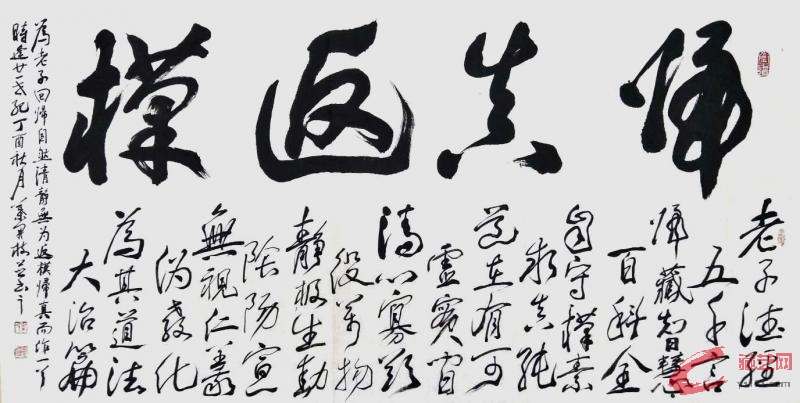 歸真返樸
老子德經
五千言
歸藏智慧
百科全
自守樸素
求真純
在有可
清心寡欲
役萬物
靜極生動
陰陽宣
無視仁義
偽教化
為其道法
大治篇
為老子回歸自然清靜無为返樸歸真而作
時逢廿一世紀丁酉秋月